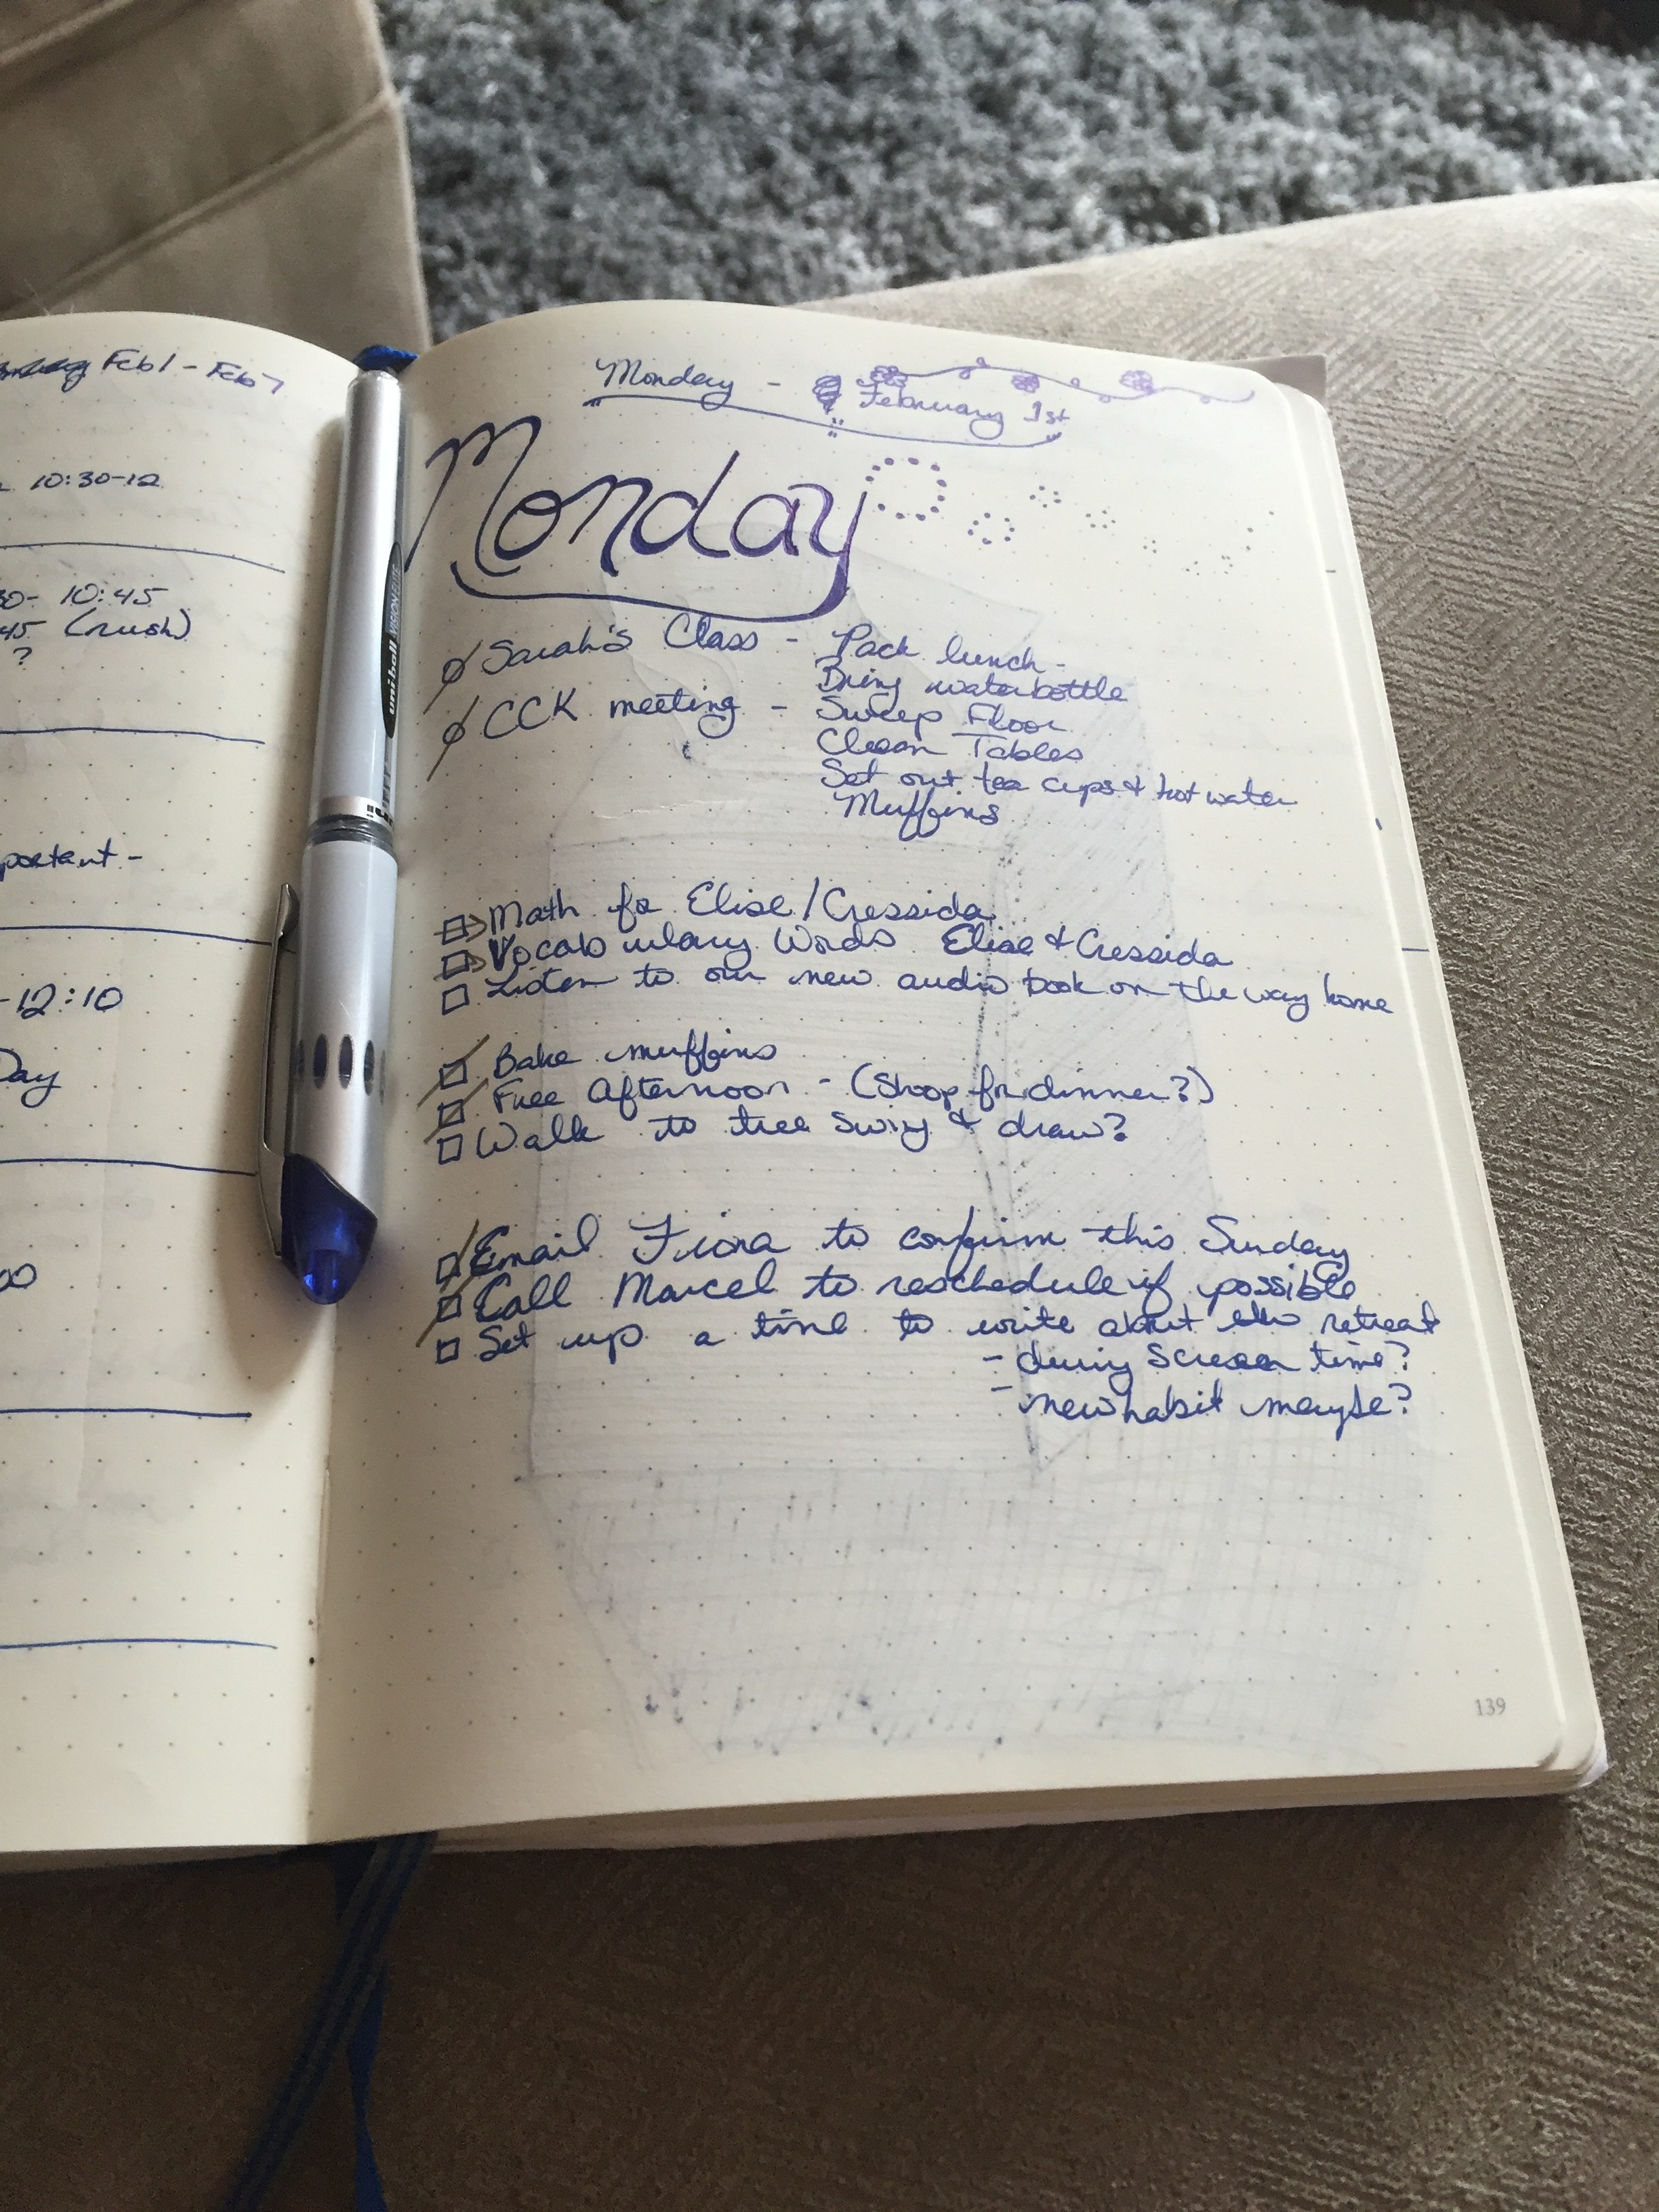 Feb 1 - Feb 7
10:30-12
10:45
45 (rush)
?
portant -
-12:10
Day
00
uniball VISION ELITE
Monday - February 1st
Monday
Sarah's Class - Pack lunch -
Bring waterbottle
CCK meeting - Sweep Floor
Clean Tables
Set out tea cups & hot water
Muffins
Math for Elise/Cressida
Vocabulary Words Elise & Cressida
Listen to our new audio book on the way home
Bake muffins
Free Afternoon - (Shop for dinner?)
Walk to tree swing & draw?
Email Fiona to confirm this Sunday
Call Marcel to reschedule if possible
Set up a time to write about the retreat
- during Screen time?
- new habit maybe?
139